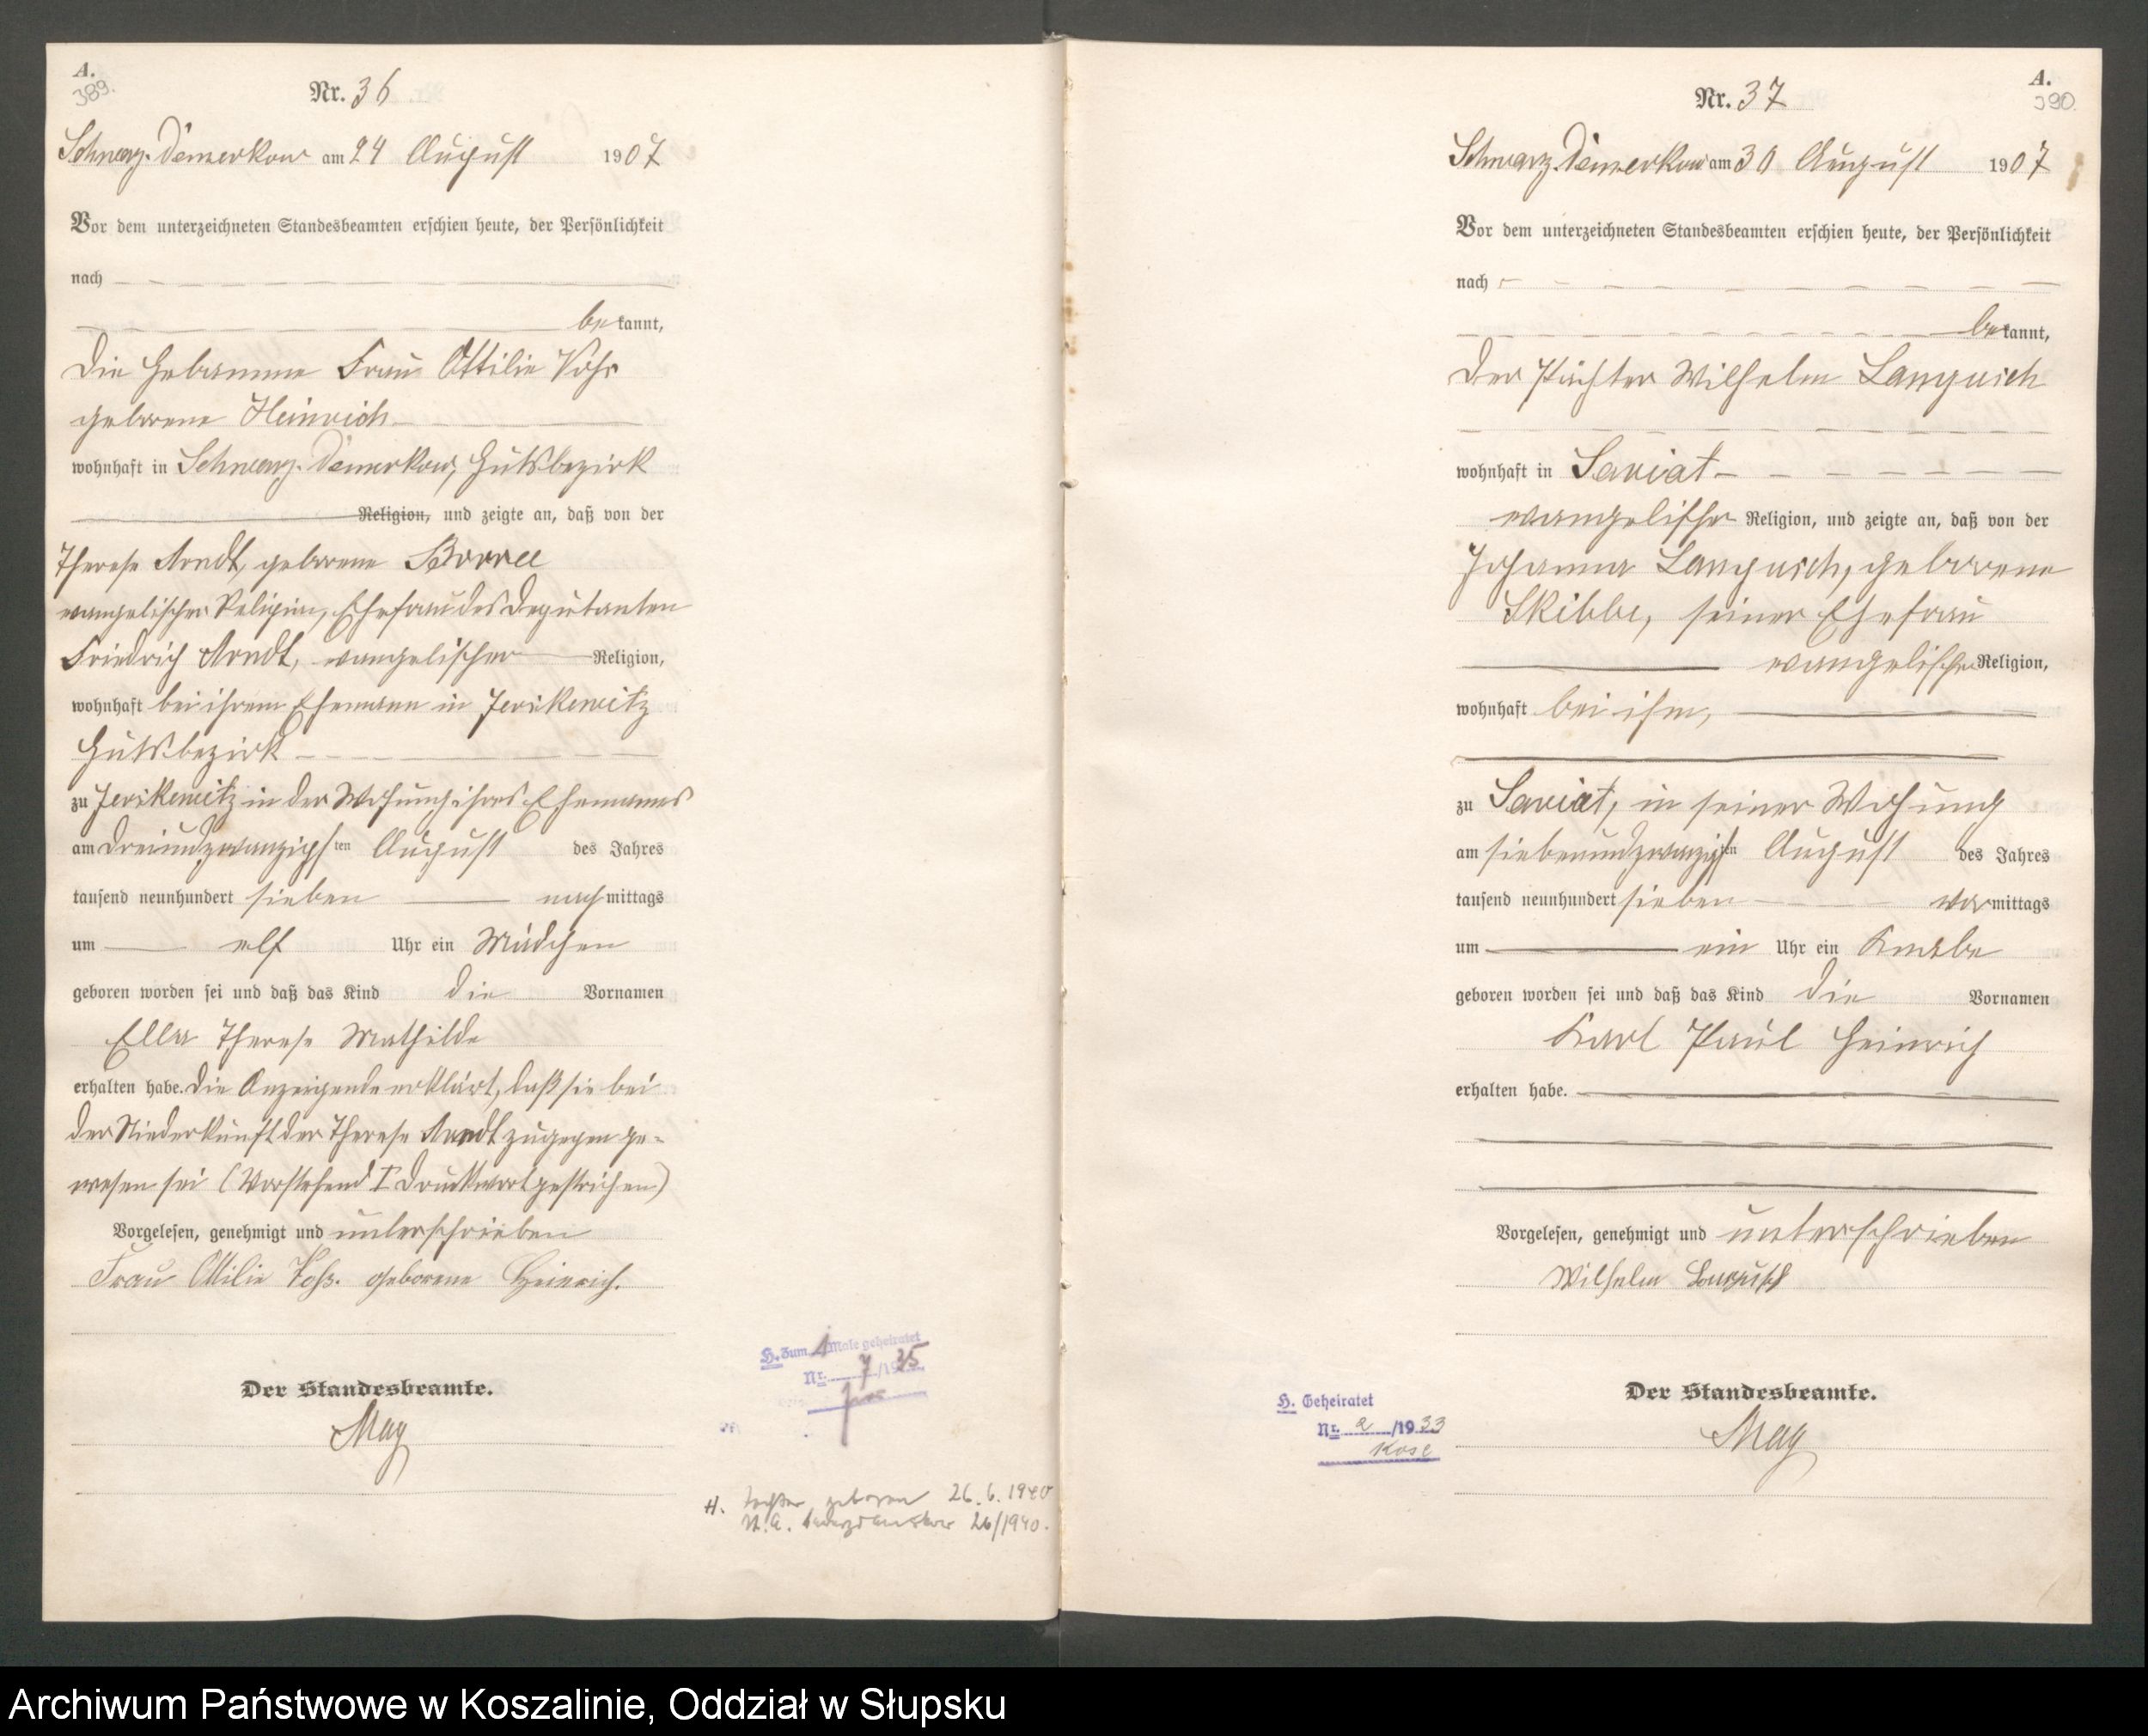 A.
389.
Nr. 36
Schwarz-Damerkow am 24 August 1907
Vor dem unterzeichneten Standesbeamten erschien heute, der Persönlichkeit
nach
bekannt,
die Hebamme Frau Ottilie Voß
geborene Heinrich
wohnhaft in Schwarz-Damerkow, Gutsbezirk
Religion, und zeigte an, daß von der
Therese Arndt, geborene
evangelischer Religion, Ehefrau des Deputanten
Friedrich Arndt, evangelischer Religion,
wohnhaft bei ihrem Ehemann in Jerskewitz
Gutsbezirk
zu Jerskewitz in der Wohnung ihres Ehemannes
am dreiundzwanzigsten August des Jahres
tausend neunhundert sieben nachmittags
um elf Uhr ein Mädchen
geboren worden sei und daß das Kind die Vornamen
Ella Therese Mathilde
erhalten habe. Die Anzeigende erklärt, daß sie bei
der Niederkunft der Therese Arndt zugegen ge-
wesen sei (Vorstehend 1 Druckwort gestrichen)
Vorgelesen, genehmigt und unterschrieben
Frau Ottilie Voß. geborene Heinrich.
Der Standesbeamte.
May
H. Zum 1 Male geheiratet
Nr. 7/1935
H. Tochter geboren 26.6.1940
26/1940.
A.
390.
Nr. 37
Schwarz-Damerkow am 30 August 1907
Vor dem unterzeichneten Standesbeamten erschien heute, der Persönlichkeit
nach
bekannt,
der Pächter Wilhelm Langusch
wohnhaft in Saviat
evangelischer Religion, und zeigte an, daß von der
Johanna Langusch, geborene
Skibbe, seiner Ehefrau
evangelischer Religion,
wohnhaft bei ihm,
zu Saviat, in seiner Wohnung
am siebenundzwanzigsten August des Jahres
tausend neunhundert sieben vormittags
um ein Uhr ein Knabe
geboren worden sei und daß das Kind die Vornamen
Karl Paul Heinrich
erhalten habe.
Vorgelesen, genehmigt und unterschrieben
Wilhelm Langusch
Der Standesbeamte.
May
H. Geheiratet
Nr. 2/1933
Kose
Archiwum Państwowe w Koszalinie, Oddział w Słupsku